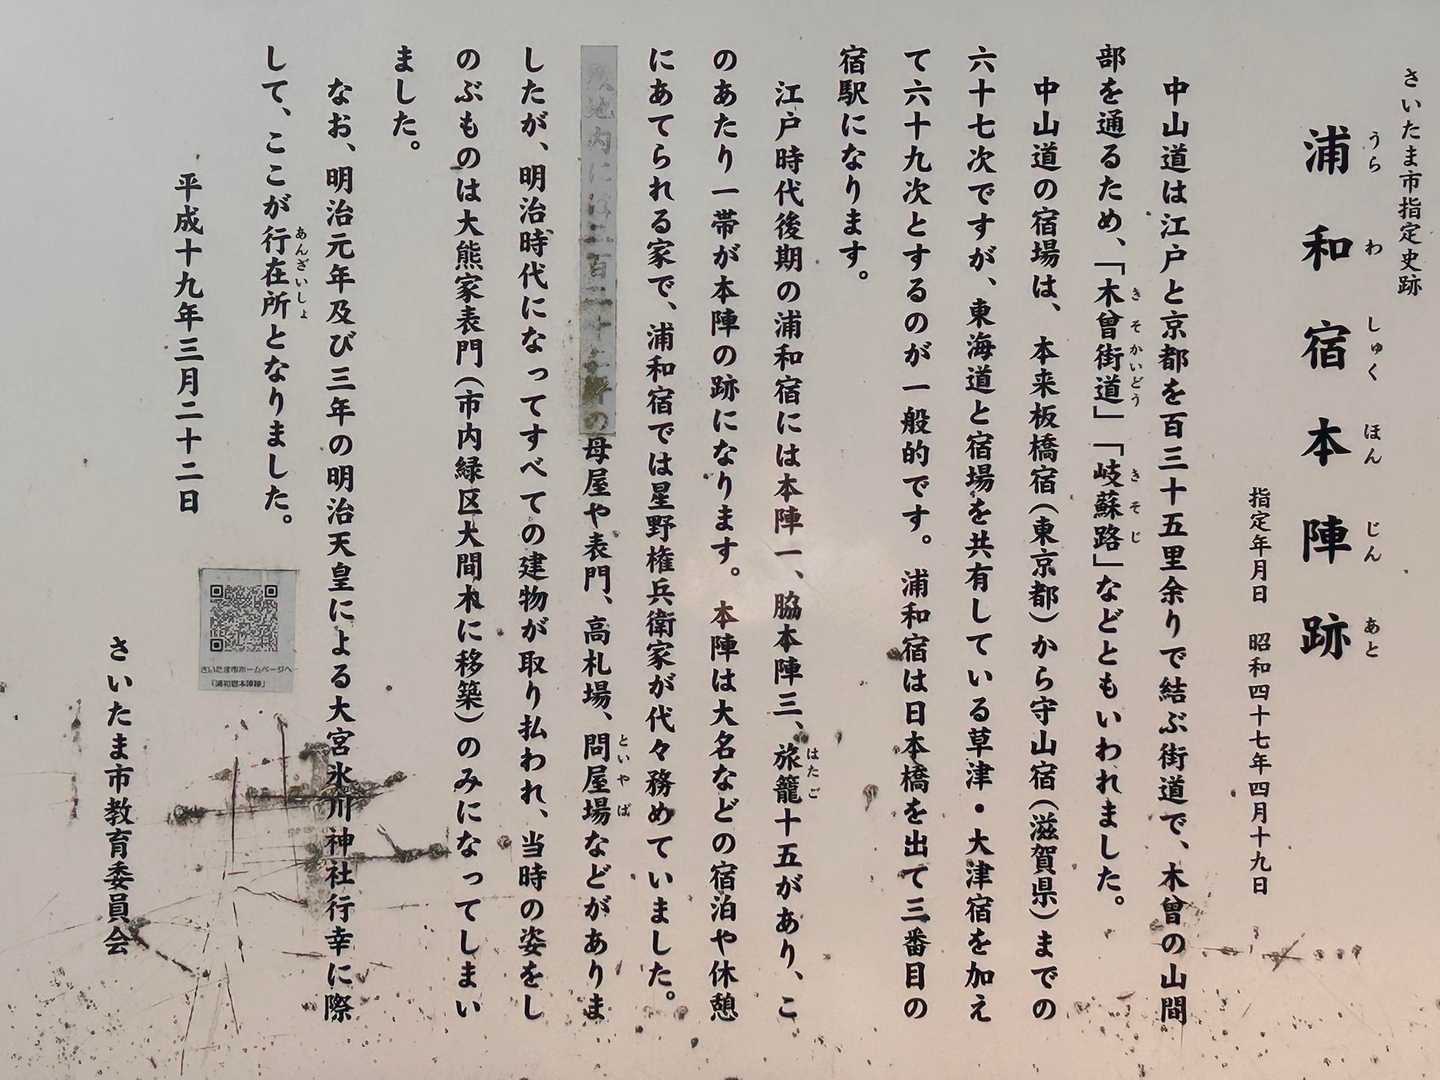 さいたま市指定史跡
浦和宿本陣跡
うらわしゅくほんじんあと
指定年月日　昭和四十七年四月十九日
中山道は江戸と京都を百三十五里余りで結ぶ街道で、木曾の山間
部を通るため、「木曾街道」「岐蘇路」などともいわれました。
きそかいどう　きそじ
中山道の宿場は、本来板橋宿（東京都）から守山宿（滋賀県）までの
六十七次ですが、東海道と宿場を共有している草津・大津宿を加え
て六十九次とするのが一般的です。浦和宿は日本橋を出て三番目の
宿駅になります。
江戸時代後期の浦和宿には本陣一、脇本陣三、旅籠十五があり、こ
はたご
のあたり一帯が本陣の跡になります。本陣は大名などの宿泊や休憩
にあてられる家で、浦和宿では星野権兵衛家が代々務めていました。
敷地内には の母屋や表門、高札場、問屋場などがありま
といやば
したが、明治時代になってすべての建物が取り払われ、当時の姿をし
のぶものは大熊家表門（市内緑区大間木に移築）のみになってしまい
ました。
なお、明治元年及び三年の明治天皇による大宮氷川神社行幸に際
して、ここが行在所となりました。
あんざいしょ
平成十九年三月二十二日
さいたま市教育委員会
さいたま市ホームページへ
「浦和宿本陣跡」